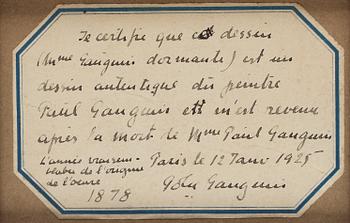 Je certifie que ce dessin
(Mme Gauguin dormante) est un
dessin autentique du peintre
Paul Gauguin et m'est revenu
après la mort de Mme Paul Gauguin
Paris le 12 Janv 1925
L'année vraisem-
blable de l'origine
de l'oeuvre
1878
Pola Gauguin